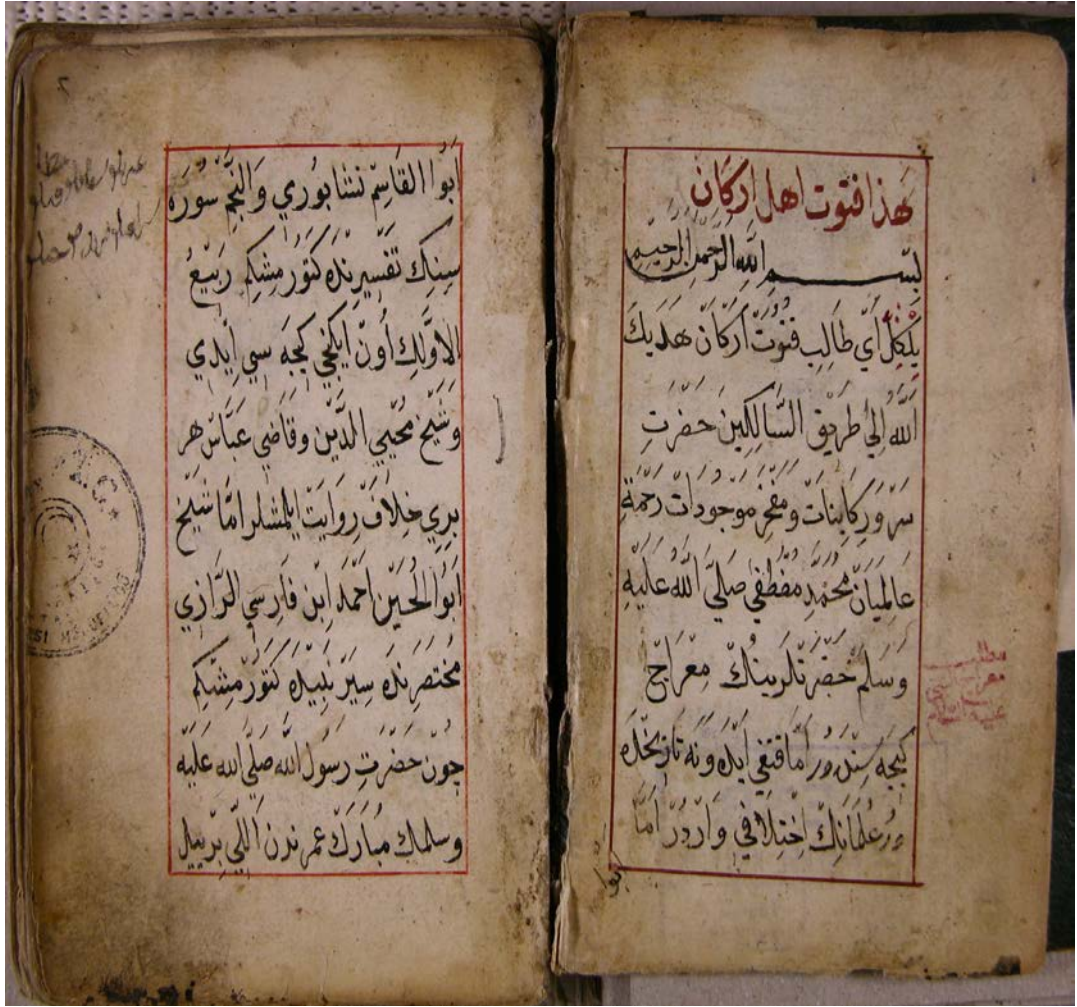 هَذا فتوت اهل اركان
بسم الله الرحمن الرحيم
بِلكِل اَي طَالِب فتوت اَركَان هَدَيكَ
اَللهُ اِليٰ طَريق السَّالِكِينَ حَضرَتِ
سَروَرِ كاَينات ومَفخرِ مَوجُودَات رَحمَةِ
عَالميَانْ مُحَمَّدِ مُصْطَفي صَلَّي اَللهُ عَلَيْهِ
وَسَلَّم حَضْرَتلَرينكْ مِعْرَاجْ
كيجَه سِندَه دُر اَمَّا قنقي ايْدَه وَنَه تاَرِيخْدَه
دُر عُلمَانِك اِخْتِلاَفي وَارْدُر اَمَّا
مطلب
معراج النبي
عليه السلام
ابوا
٢
اَبُوا القَاسِمْ نشابُوري وَالنَّجْم سُورَه
سِنِكْ تَفسِيرِندَه كَتُورمِشكِم رَبيعُ
الاَوَّلِك اُونْ ايكنْجي كيجَه سِي اِيدي
وَشَيْخ مُحْييِ الدِّين وقَاضِي عَبَّاسْ هر
بِري خِلاَفْ رِوَايَتْ ايلمشلر امَّا شَيْخ
اَبُوالحُسَين اَحْمَد اِبْنِ فَارسِي الرَّازي
مُختَصَرندَه سِيَرِ نَبِيدَه كَتُورْمِشْكِم
چُون حَضرَتِ رَسُول الله صَلَّي الله عَلَيْه
وسلمك مُبَارَكْ عمرندن اَللّي بِر ييل